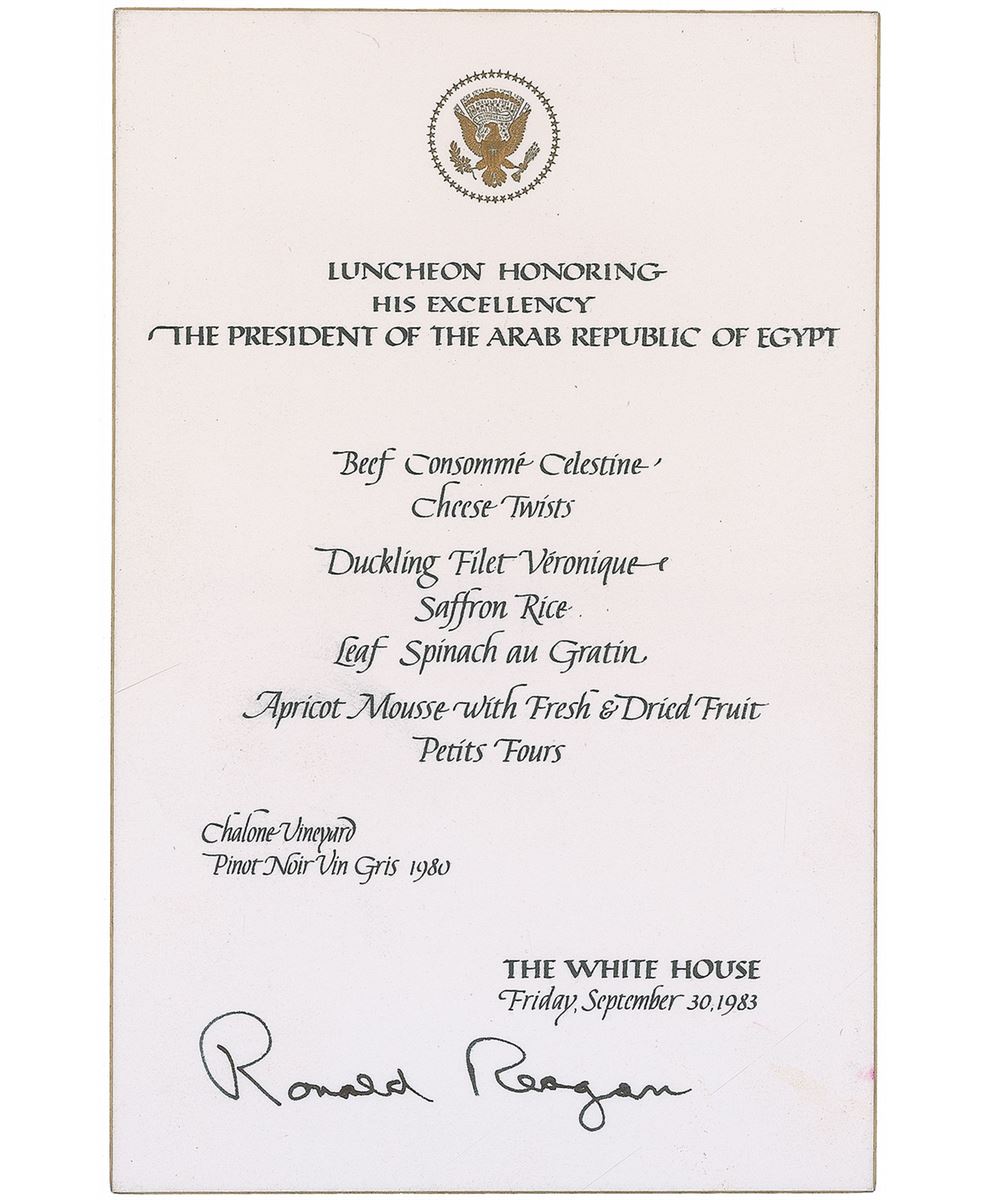 LUNCHEON HONORING
HIS EXCELLENCY
THE PRESIDENT OF THE ARAB REPUBLIC OF EGYPT
Beef Consommé Celestine
Cheese Twists
Duckling Filet Véronique
Saffron Rice
Leaf Spinach au Gratin
Apricot Mousse with Fresh & Dried Fruit
Petits Fours
Chalone Vineyard
Pinot Noir Vin Gris 1980
THE WHITE HOUSE
Friday, September 30, 1983
Ronald Reagan